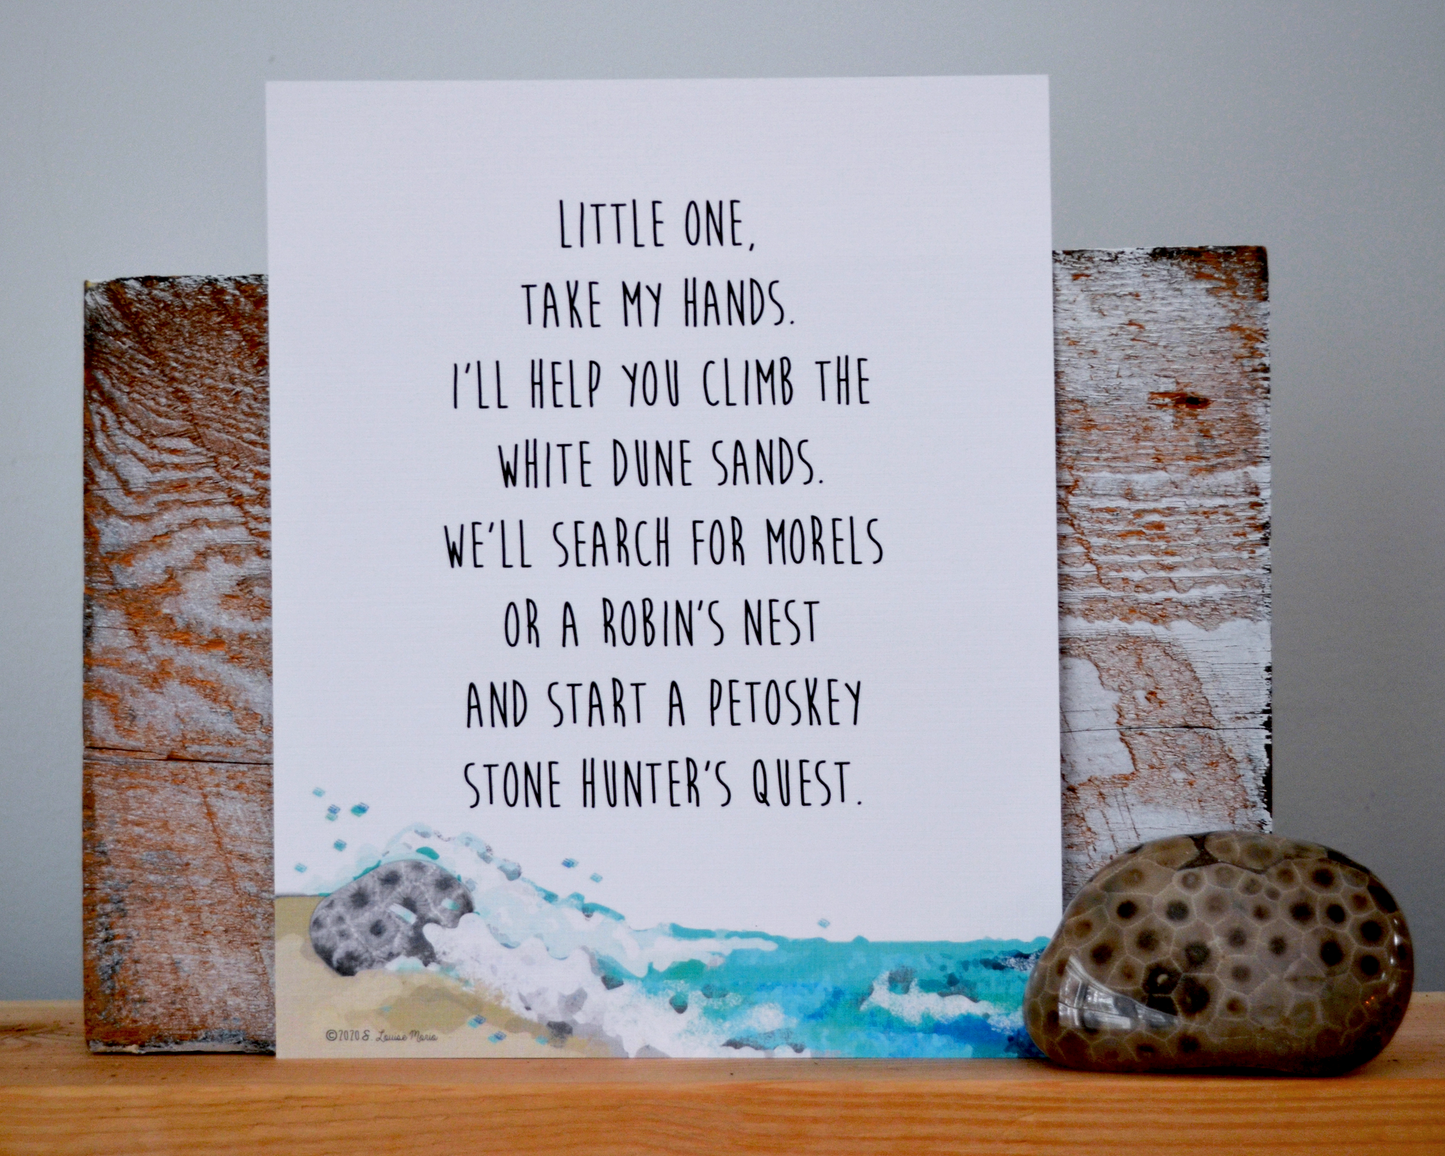 LITTLE ONE,
TAKE MY HANDS.
I'LL HELP YOU CLIMB THE
WHITE DUNE SANDS.
WE'LL SEARCH FOR MORELS
OR A ROBIN'S NEST
AND START A PETOSKEY
STONE HUNTER'S QUEST.
©2020 E Louise Marie